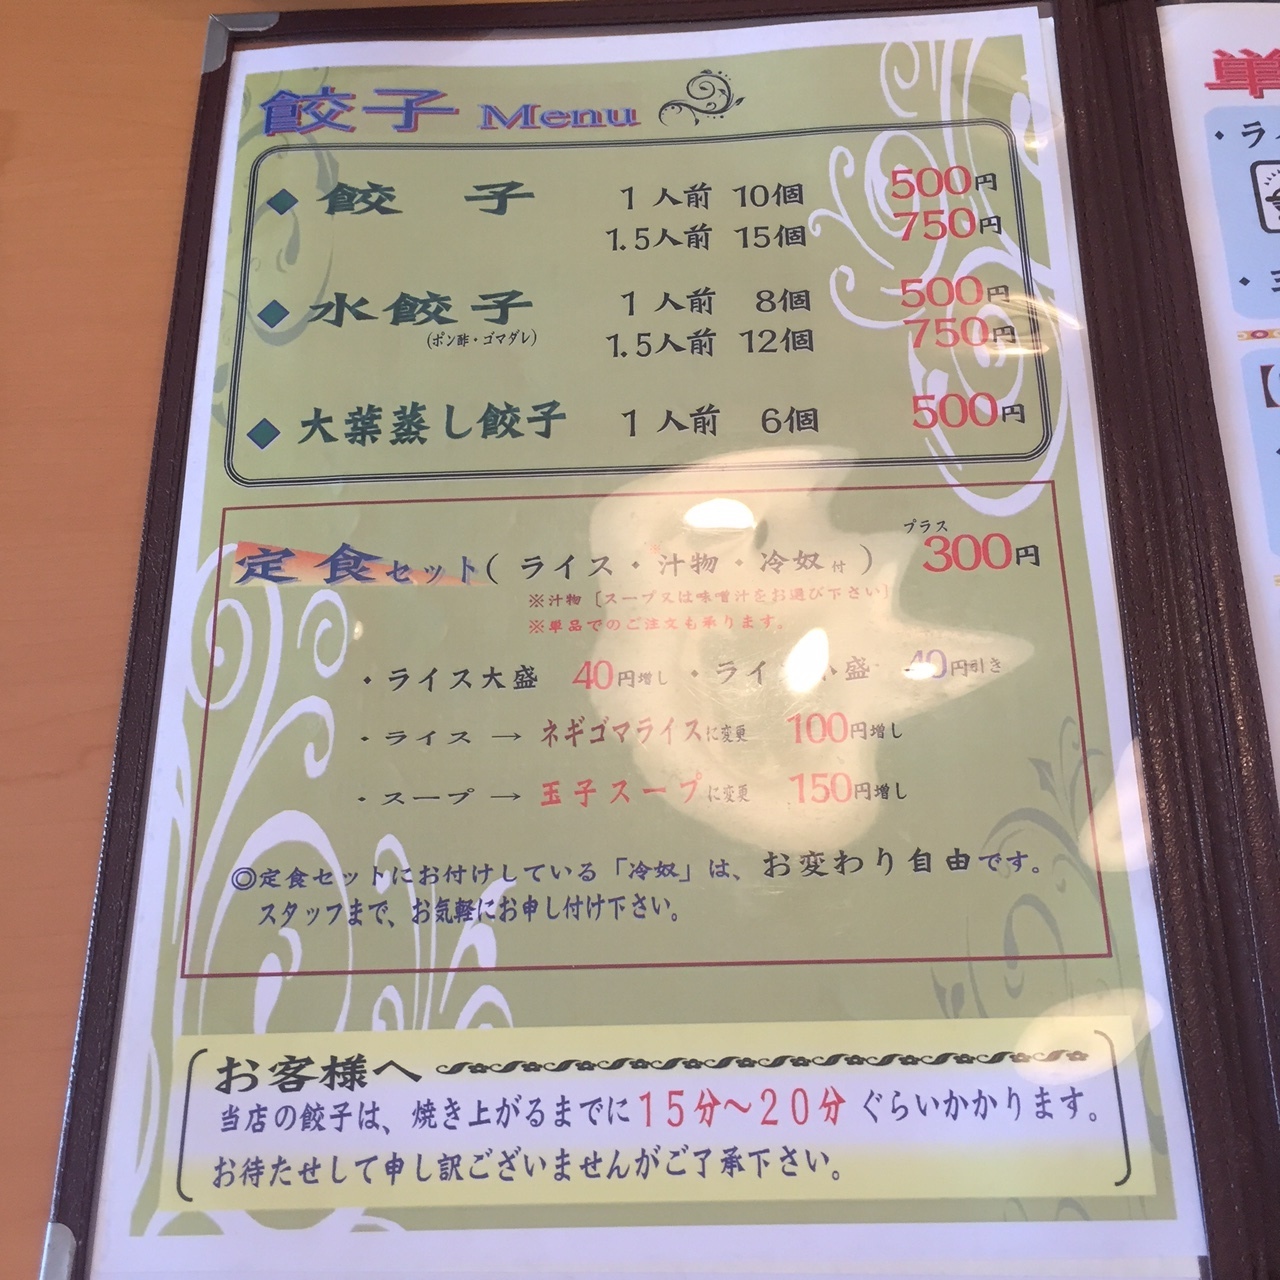 餃子 Menu
◆ 餃子 1人前 10個 500円
1.5人前 15個 750円
◆ 水餃子 1人前 8個 500円
(ポン酢・ゴマダレ) 1.5人前 12個 750円
◆ 大葉蒸し餃子 1人前 6個 500円
プラス
定食セット(ライス・汁物・冷奴付) 300円
※汁物〔スープ又は味噌汁をお選び下さい〕
※単品でのご注文も承ります。
・ライス大盛 40円増し ・ライ 小盛 40円引き
・ライス → ネギゴマライスに変更 100円増し
・スープ → 玉子スープに変更 150円増し
◎定食セットにお付けしている「冷奴」は、お変わり自由です。
スタッフまで、お気軽にお申し付け下さい。
お客様へ
当店の餃子は、焼き上がるまでに15分～20分ぐらいかかります。
お待たせして申し訳ございませんがご了承下さい。
単
・ラ